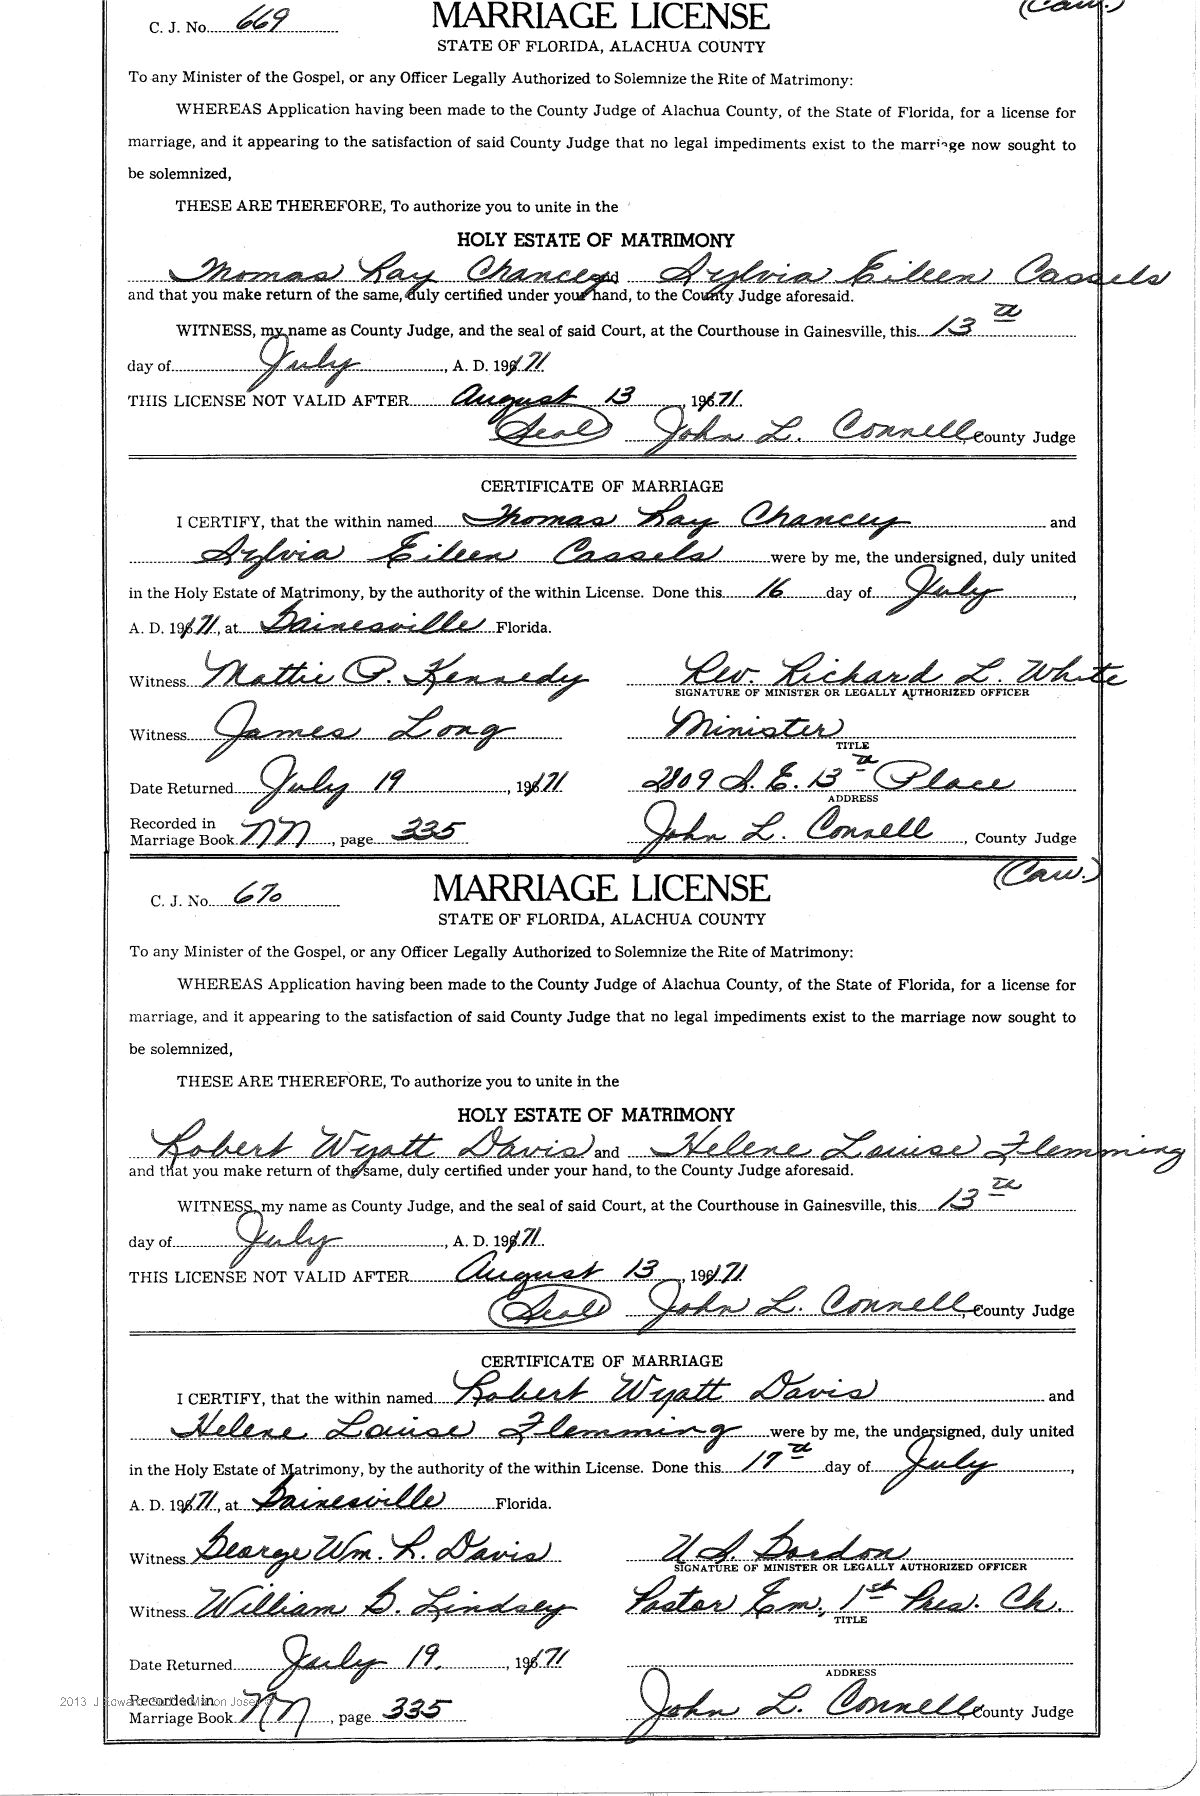 (Cau.)
C. J. No. 669 MARRIAGE LICENSE
STATE OF FLORIDA, ALACHUA COUNTY
To any Minister of the Gospel, or any Officer Legally Authorized to Solemnize the Rite of Matrimony:
WHEREAS Application having been made to the County Judge of Alachua County, of the State of Florida, for a license for
marriage, and it appearing to the satisfaction of said County Judge that no legal impediments exist to the marriage now sought to
be solemnized,
THESE ARE THEREFORE, To authorize you to unite in the
HOLY ESTATE OF MATRIMONY
Thomas Ray Chancey and Sylvia Eileen Cassels
and that you make return of the same, duly certified under your hand, to the County Judge aforesaid.
WITNESS, my name as County Judge, and the seal of said Court, at the Courthouse in Gainesville, this 13th
day of July, A. D. 1971
THIS LICENSE NOT VALID AFTER August 13, 1971
(Seal) John L. Connell, County Judge
CERTIFICATE OF MARRIAGE
I CERTIFY, that the within named Thomas Ray Chancey and
Sylvia Eileen Cassels were by me, the undersigned, duly united
in the Holy Estate of Matrimony, by the authority of the within License. Done this 16 day of July,
A. D. 1971, at Gainesville Florida.
Witness Mattie P. Kennedy Rev. Richard L. White
SIGNATURE OF MINISTER OR LEGALLY AUTHORIZED OFFICER
Witness James Long Minister
TITLE
Date Returned July 19, 1971 2109 S. E. 13th Place
ADDRESS
Recorded in
Marriage Book NN, page 335 John L. Connell, County Judge
(Cau.)
C. J. No. 670 MARRIAGE LICENSE
STATE OF FLORIDA, ALACHUA COUNTY
To any Minister of the Gospel, or any Officer Legally Authorized to Solemnize the Rite of Matrimony:
WHEREAS Application having been made to the County Judge of Alachua County, of the State of Florida, for a license for
marriage, and it appearing to the satisfaction of said County Judge that no legal impediments exist to the marriage now sought to
be solemnized,
THESE ARE THEREFORE, To authorize you to unite in the
HOLY ESTATE OF MATRIMONY
Robert Wyatt Davis and Helene Louise Flemming
and that you make return of the same, duly certified under your hand, to the County Judge aforesaid.
WITNESS, my name as County Judge, and the seal of said Court, at the Courthouse in Gainesville, this 13th
day of July, A. D. 1971
THIS LICENSE NOT VALID AFTER August 13, 1971
(Seal) John L. Connell, County Judge
CERTIFICATE OF MARRIAGE
I CERTIFY, that the within named Robert Wyatt Davis and
Helene Louise Flemming were by me, the undersigned, duly united
in the Holy Estate of Matrimony, by the authority of the within License. Done this 17th day of July,
A. D. 1971, at Gainesville Florida.
Witness George Wm. R. Davis U. S. Gordon
SIGNATURE OF MINISTER OR LEGALLY AUTHORIZED OFFICER
Witness William G. Lindsey Pastor Em, 1st Pres. Ch.
TITLE
Date Returned July 19, 1971
ADDRESS
Recorded in
Marriage Book NN, page 335 John L. Connell, County Judge
2013